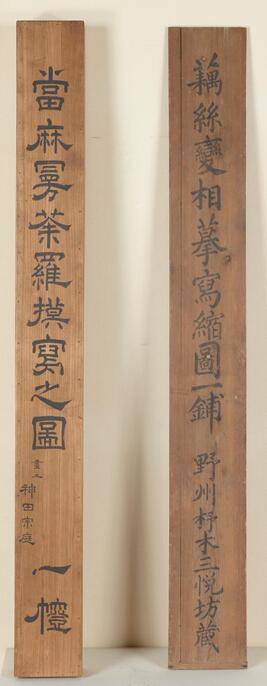 藕絲變相摹寫縮圖一鋪 野州杼木三悦坊藏
當麻曼荼羅摸寫之圖
畫工
神田宗庭
一